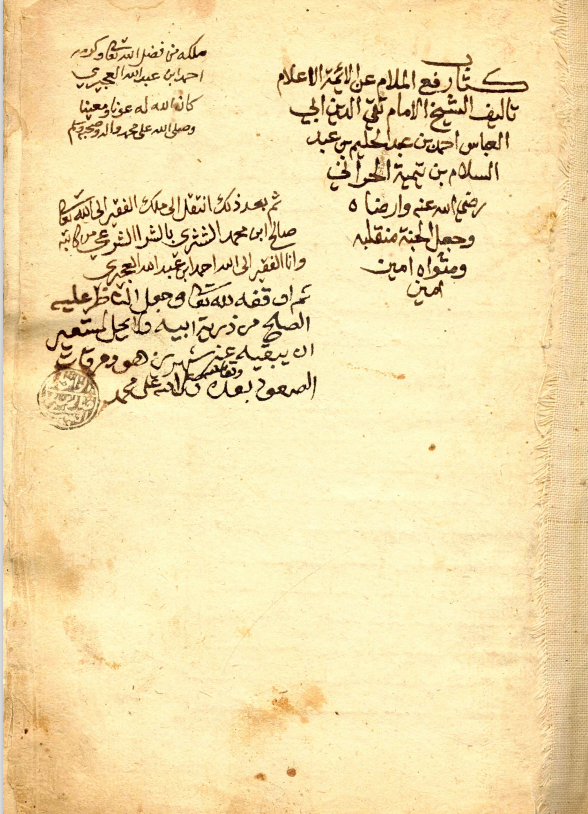 كتاب رفع الملام عن الائمة الاعلام
تاليف الشيخ الامام تقي الدين ابي
العباس احمد بن عبد الحليم بن عبد
السلام بن تيمية الحراني
رضي الله عنه وارضاه
وجعل الجنة منقلبه
ومثواه امين
امين
ملكه من فضل الله تعالى وكرمه
احمد ابن عبد الله العجيري
كان الله له عونا ومعينا
وصلى الله على محمد واله وصحبه وسلم
ثم بعد ذلك انتقل الى ملك الفقير الى الله تعالى
صالح ابن محمد الشثري بالشرا الشرعي من كاتبه
وانا الفقير الى الله احمد ابن عبد الله العجيري
ثم اوقفه لله تعالى وجعل الناظر عليه
الصلح من ذرية ابيه ولا يحل لمستعير
ان يبقيه عنده شهرين
بعده وصلى الله على محمد